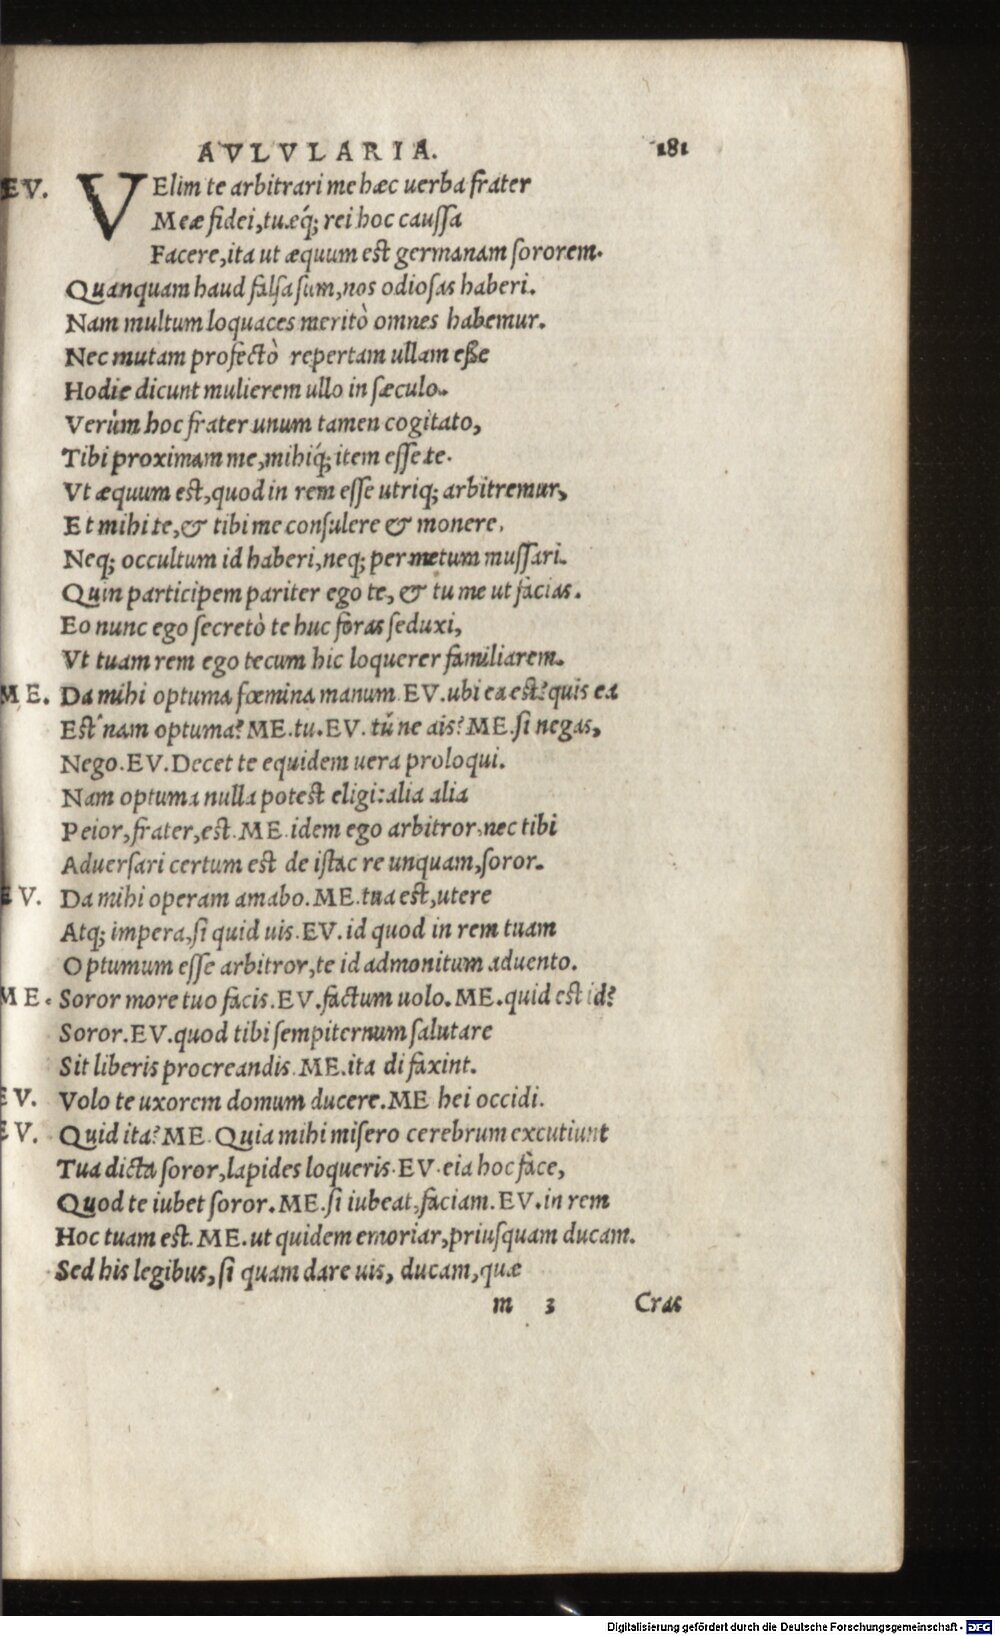 AVLVLARIA. 181
EV. VElim te arbitrari me hæc uerba frater
Meæ fidei, tuæq́; rei hoc caussa
Facere, ita ut æquum est germanam sororem.
Quanquam haud falsa sum, nos odiosas haberi.
Nam multum loquaces meritò omnes habemur.
Nec mutam profectò repertam ullam eße
Hodie dicunt mulierem ullo in sæculo.
Verùm hoc frater unum tamen cogitato,
Tibi proximam me, mihiq́; item esse te.
Vt æquum est, quod in rem esse utriq; arbitremur,
Et mihi te, & tibi me consulere & monere,
Neq; occultum id haberi, neq; per metum mussari.
Quin participem pariter ego te, & tu me ut facias.
Eo nunc ego secretò te huc foras seduxi,
Vt tuam rem ego tecum hic loquerer familiarem.
ME. Da mihi optuma fœmina manum. EV. ubi ea est? quis ea
Est'nam optuma? ME. tu. EV. tú ne ais? ME. si negas,
Nego. EV. Decet te equidem uera proloqui.
Nam optuma nulla potest eligi: alia alia
Peior, frater, est. ME. idem ego arbitror, nec tibi
Aduersari certum est de istac re unquam, soror.
EV. Da mihi operam amabo. ME. tua est, utere
Atq; impera, si quid uis. EV. id quod in rem tuam
Optumum esse arbitror, te id admonitum aduento.
ME. Soror more tuo facis. EV. factum uolo. ME. quid est id?
Soror. EV. quod tibi sempiternum salutare
Sit liberis procreandis. ME. ita di faxint.
EV. Volo te uxorem domum ducere. ME hei occidi.
EV. Quid ita? ME. Quia mihi misero cerebrum excutiunt
Tua dicta soror, lapides loqueris. EV. eia hoc face,
Quod te iubet soror. ME. si iubeat, faciam. EV. in rem
Hoc tuam est. ME. ut quidem emoriar, priusquam ducam.
Sed his legibus, si quam dare uis, ducam, quæ
m 3 Cras
Digitalisierung gefördert durch die Deutsche Forschungsgemeinschaft - DFG